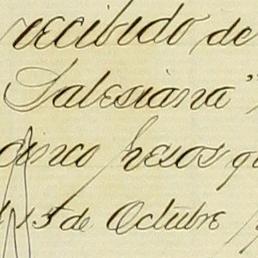 recibido de
Salesiana",
cinco pesos
13 de Octubre